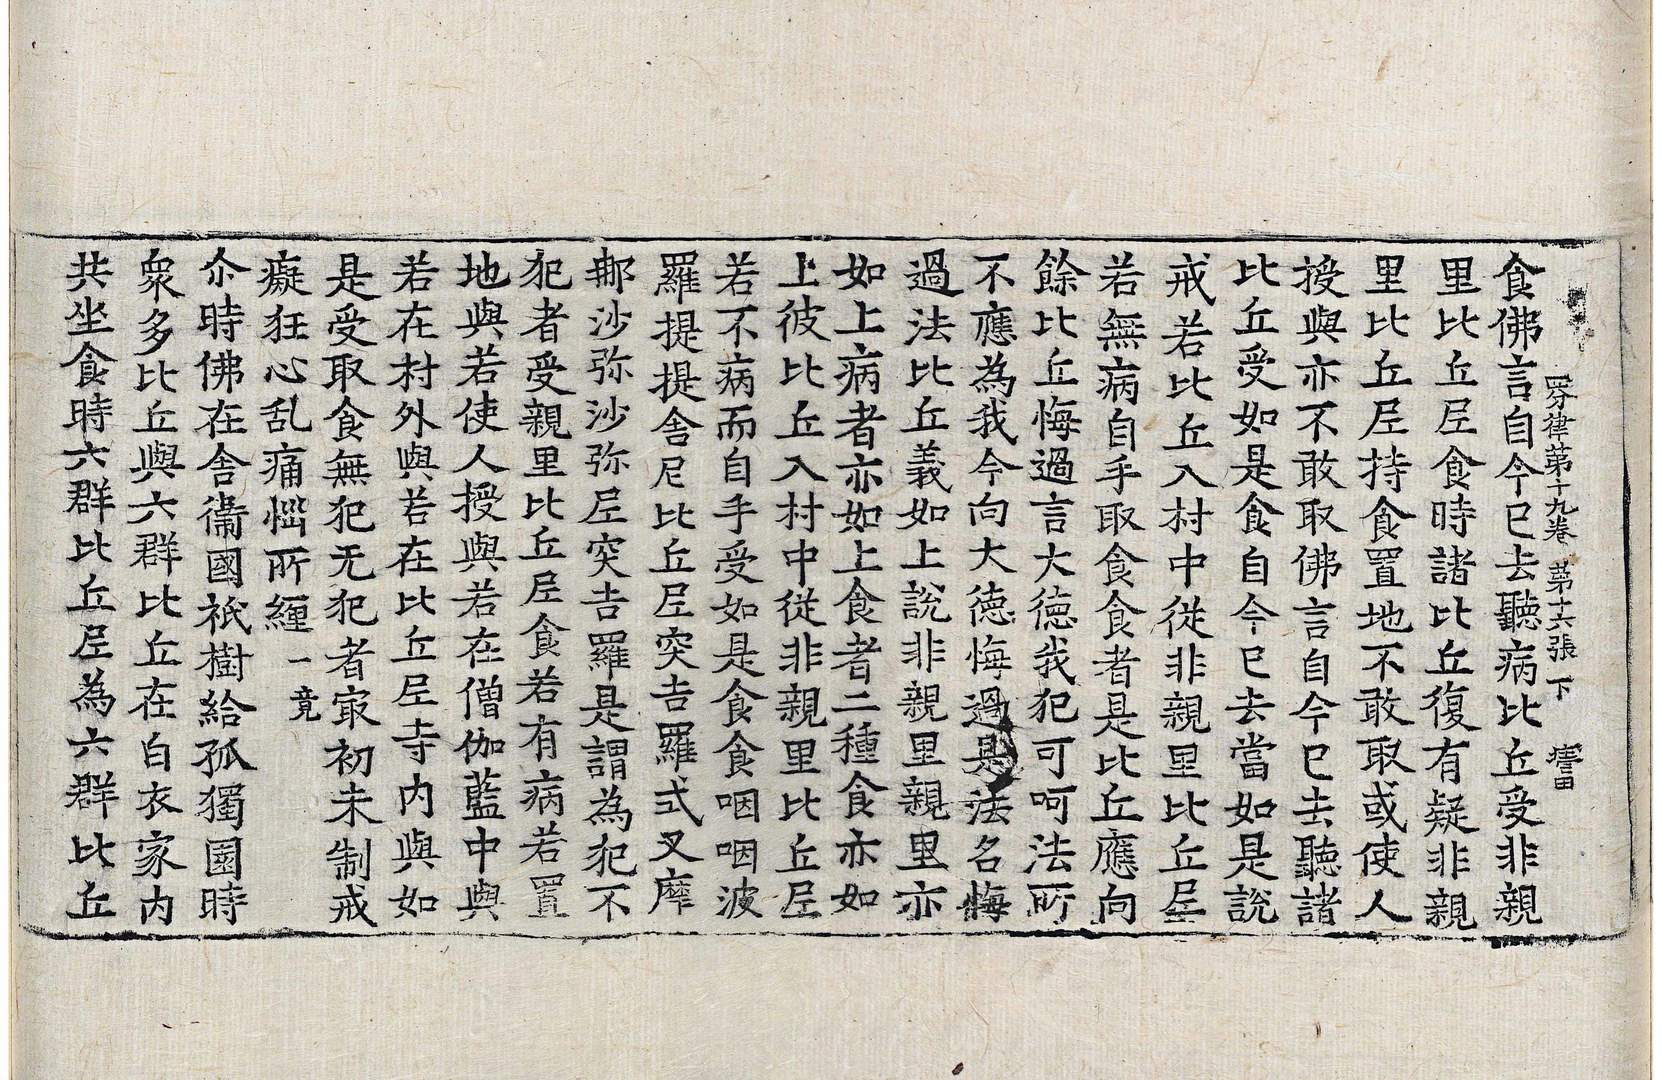 四分律第十九卷 第十六張 下
食佛言自今已去聽病比丘受非親
里比丘尼食時諸比丘復有疑非親
里比丘尼持食置地不敢取或使人
授與亦不敢取佛言自今已去聽諸
比丘受如是食自今已去當如是說
戒若比丘入村中從非親里比丘尼
若無病自手取食食者是比丘應向
餘比丘悔過言大德我犯可呵法所
不應為我今向大德悔過是法名悔
過法比丘義如上說非親里親里亦
如上病者亦如上食者二種食亦如
上彼比丘入村中從非親里比丘尼
若不病而自手受如是食食咽咽波
羅提提舍尼比丘尼突吉羅式叉摩
那沙弥沙弥尼突吉羅是謂為犯不
犯者受親里比丘尼食若有病若置
地與若使人授與若在僧伽藍中與
若在村外與若在比丘尼寺内與如
是受取食無犯无犯者冣初未制戒
癡狂心乱痛惱所纏 一竟
尒時佛在舍衛國祇樹給孤獨園時
衆多比丘與六群比丘在白衣家内
共坐食時六群比丘尼為六群比丘